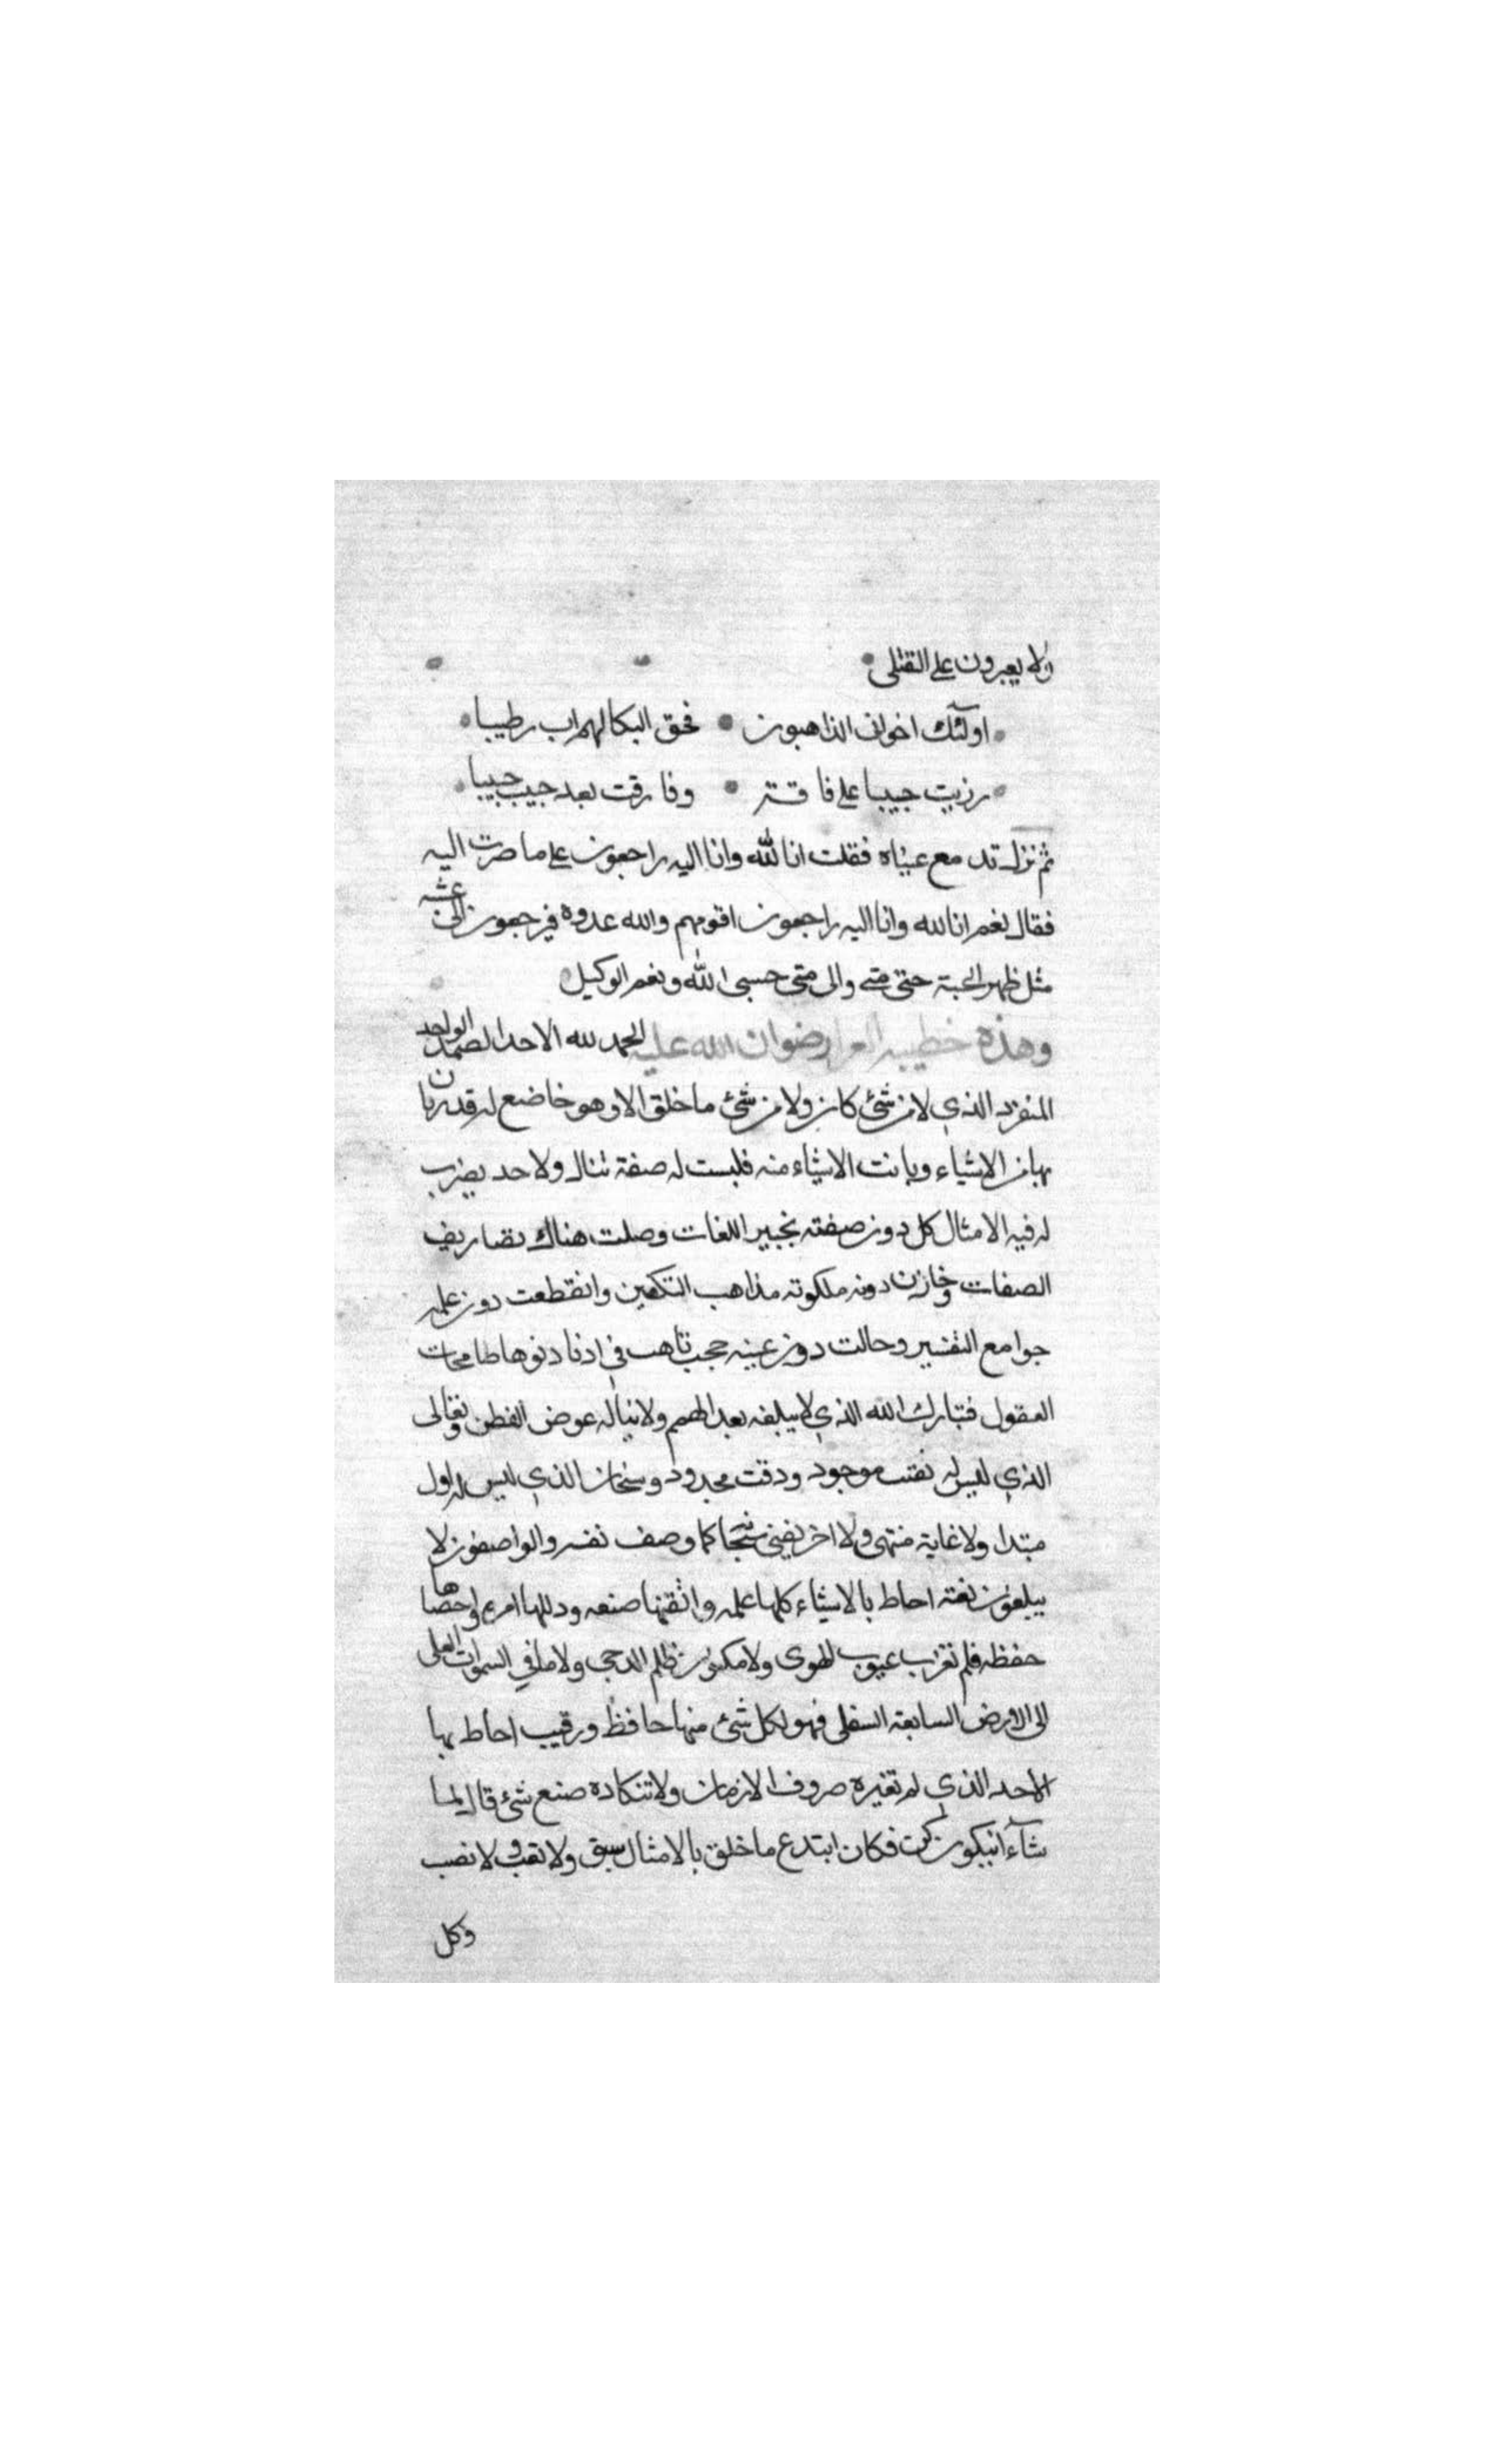 ولا يعبرون على القتلى
اولئك اخوانى الذاهبون فحق البكا لهم ان يطيبا
رزيت حبيبا على فاقة وفارقت بعد حبيب حبيبا
ثم نزل تدمع عيناه فقلت انا لله وانا اليه راجعون على ما صرت اليه
فقال نعم انا لله وانا اليه راجعون اقومهم والله غدوة فيرجعون الى عشيه
مثل ظهر الحية حتى متى والى متى حسبى الله ونعم الوكيل
وهذه خطبته رضوان الله عليه الحمد لله الاحد الصمد الواحد
المنفرد الذي لا من شئ كان ولا من شئ ما خلق الا وهو خاضع له قدرة بان
بها من الاشياء وبانت الاشياء منه فليست له صفة تنال ولا حد يضرب
له فيه الامثال كل دون صفته تحبير اللغات وضلت هناك تصاريف
الصفات دون ملكوته مذاهب التكفير وانقطعت دون علمه
جوامع التفسير وحالت دون غيبه حجب تاهت في ادنا دنوها طامحات
العقول فتبارك الله الذي لا يبلغه بعد الهمم ولا يناله غوص الفطن وتعالى
الذي ليس له نعت موجود ووقت محدود وسبحان الذي ليس له اول
مبتدا ولا غاية منتهى ولا اخر يفنى سبحانه كما وصف نفسه والواصفون لا
يبلغون نعته احاط بالاشياء كلها علمه واتقنها صنعه وذللها امره واحصاها
حفظه فلم تعزب غيوب الهوى ولا مكنون ظلم الدجى ولا ما في السموات العلى
الى الارض السابعة السفلى فهو لكل شئ منها حافظ ورقيب احاط بها
الاحد الذي لم تغيره صروف الازمان ولا تتكاده صنع شئ قال لما
شآء ان يكون كن فكان ابتدع ما خلق بلا مثال سبق ولا تعب ولا نصب
وكل